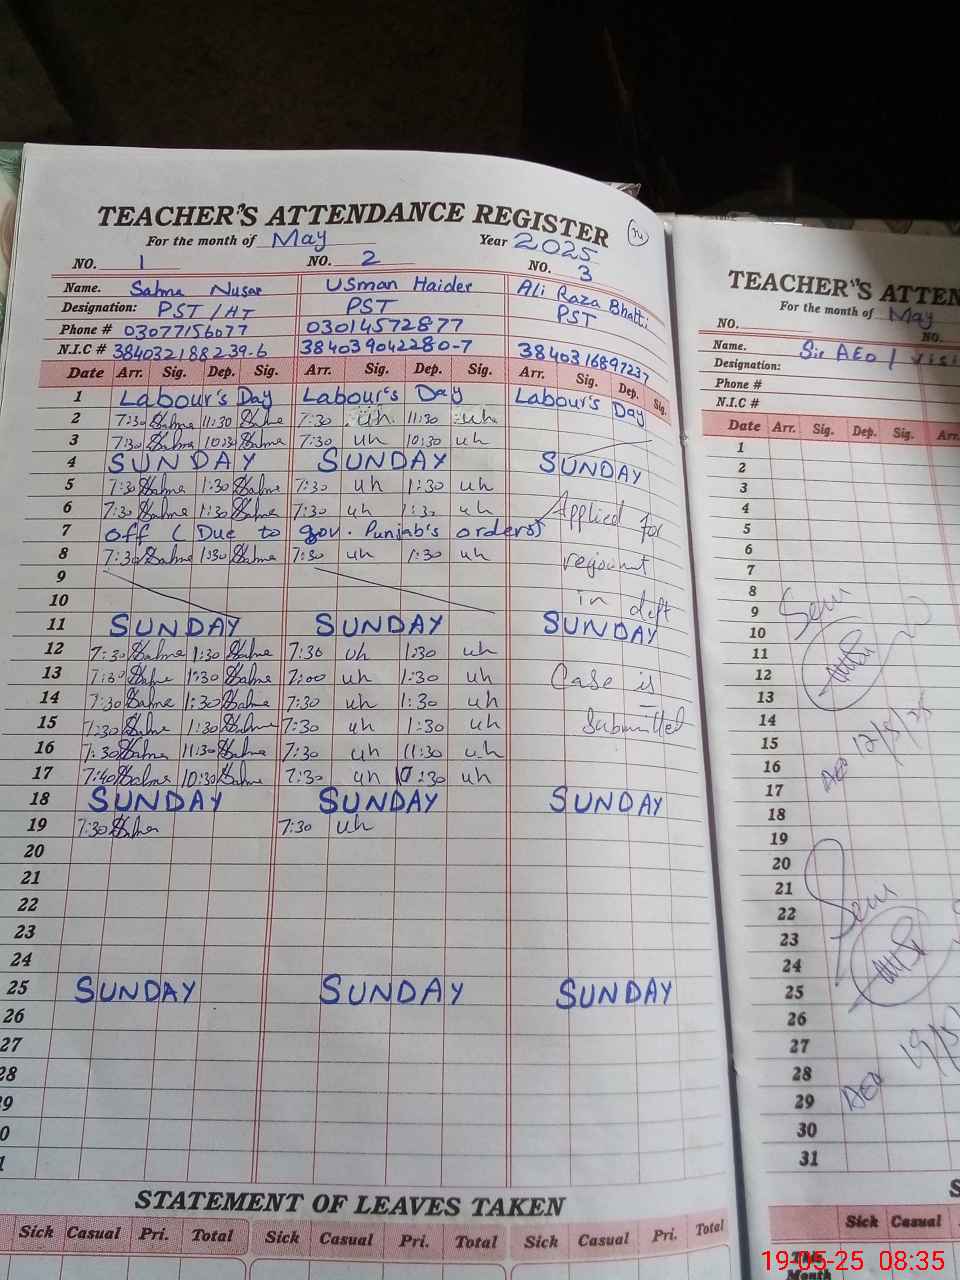 TEACHER'S ATTENDANCE REGISTER
For the month of May Year 2025
NO. 1 NO. 2 NO. 3
Name. Salma Nusar Usman Haider Ali Raza Bhatti
Designation: PST / HT PST PST
Phone # 03077156077 03014572877
N.I.C # 384032188239-6 384039042280-7 384031689723
Date Arr. Sig. Dep. Sig. Arr. Sig. Dep. Sig. Arr. Sig. Dep. Sig.
1 Labour's Day Labour's Day Labour's Day
2 7:30 Salma 11:30 Salma 7:30 uh 11:30 uh
3 7:30 Salma 10:30 Salma 7:30 uh 10:30 uh
4 SUNDAY SUNDAY SUNDAY
5 7:30 Salma 1:30 Salma 7:30 uh 1:30 uh
6 7:30 Salma 1:30 Salma 7:30 uh 1:30 uh Applied for
7 off (Due to gov. Punjab's orders)
8 7:30 Salma 1:30 Salma 7:30 uh 1:30 uh
9
10 in
11 SUNDAY SUNDAY SUNDAY
12 7:30 Salma 1:30 Salma 7:30 uh 1:30 uh
13 7:30 Salma 1:30 Salma 7:00 uh 1:30 uh Case is
14 7:30 Salma 1:30 Salma 7:30 uh 1:30 uh
15 7:30 Salma 1:30 Salma 7:30 uh 1:30 uh Submitted
16 7:30 Salma 11:30 Salma 7:30 uh 11:30 uh
17 7:40 Salma 10:30 Salma 7:30 uh 10:30 uh
18 SUNDAY SUNDAY SUNDAY
19 7:30 Salma 7:30 uh
20
21
22
23
24
25 SUNDAY SUNDAY SUNDAY
26
27
28
9
0
1
STATEMENT OF LEAVES TAKEN
Sick Casual Pri. Total Sick Casual Pri. Total Sick Casual Pri. Total
TEACHER'S ATTEN
For the month of May
NO. NO.
Name. Sir AEO / visi
Designation:
Phone #
N.I.C #
Date Arr. Sig. Dep. Sig. Arr.
1
2
3
4
5
6
7
8
9
10
11
12
13
14
15
16 AEO 12/5/25
17
18
19
20
21
22
23
24
25
26
27
28
29 AEO 19/5
30
31
S
Sick Casual
This
Month
19-05-25 08:35